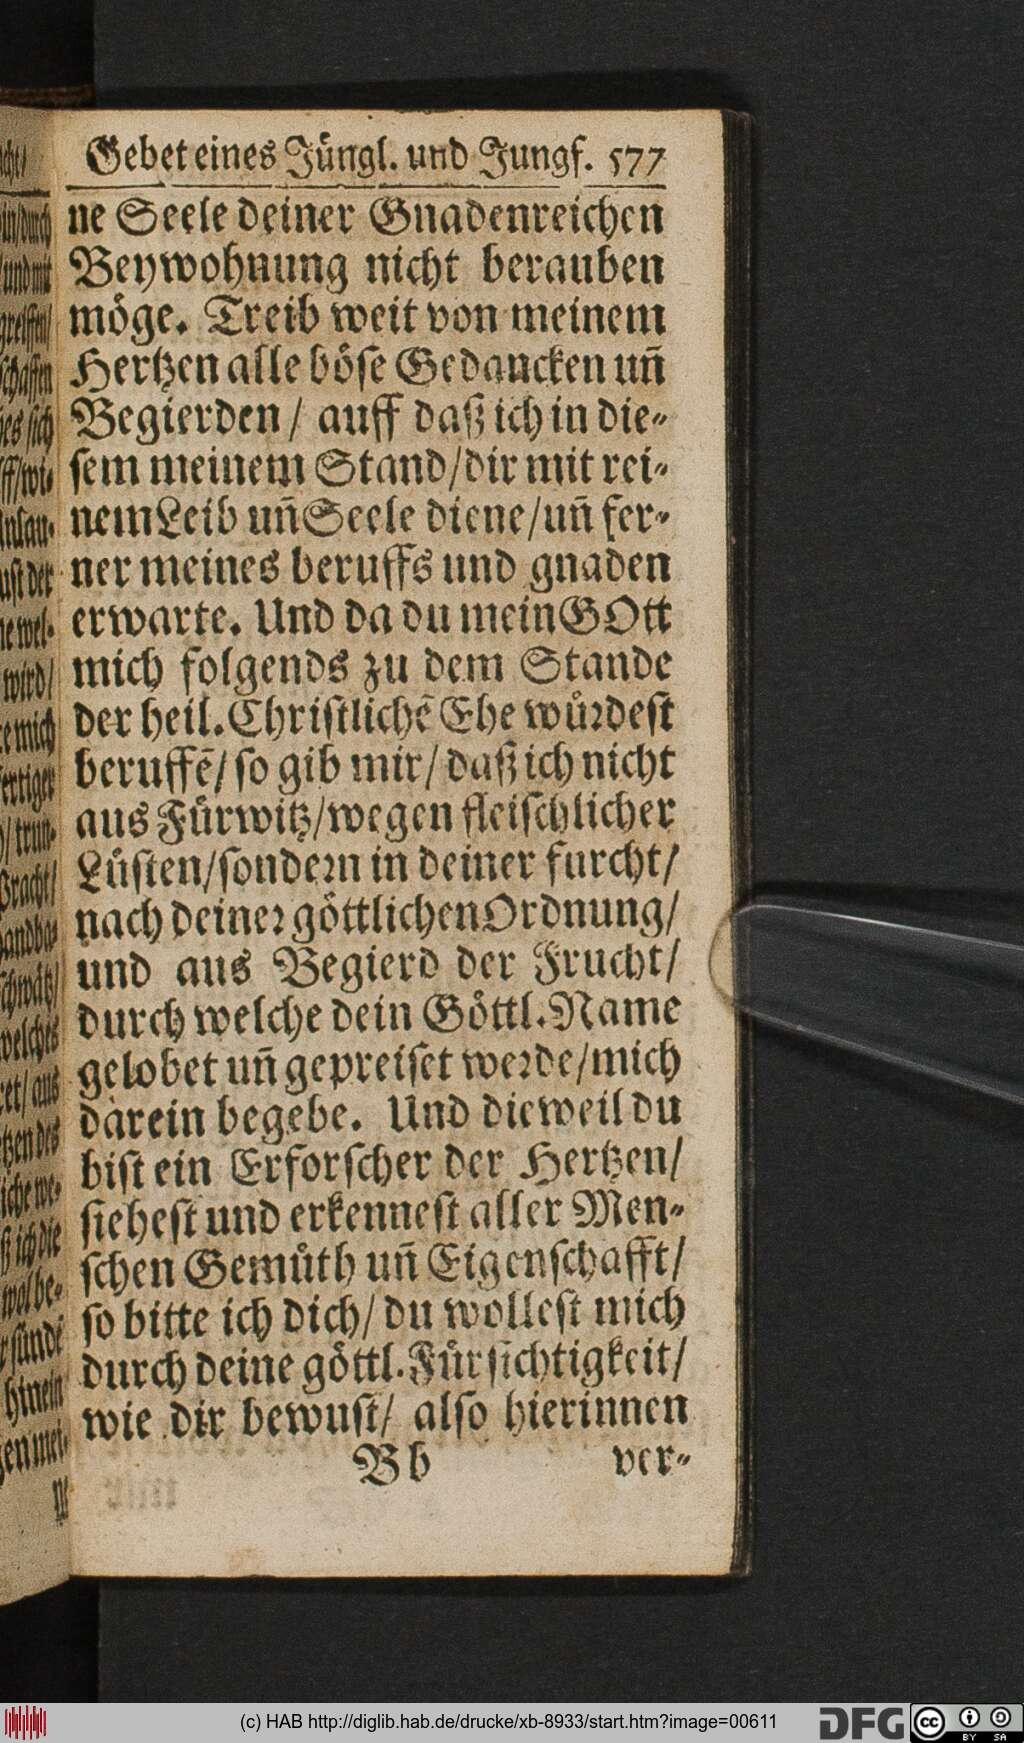 Gebet eines Jüngl. und Jungf. 577
ne Seele deiner Gnadenreichen
Beywohnung nicht berauben
möge. Treib weit von meinem
Hertzen alle böse Gedancken uñ
Begierden / auff daß ich in die-
sem meinem Stand / dir mit rei-
nem Leib uñ Seele diene / uñ fer-
ner meines beruffs und gnaden
erwarte. Und da du mein GOtt
mich folgends zu dem Stande
der heil. Christlichẽ Ehe würdest
beruffẽ / so gib mir / daß ich nicht
aus Fürwitz / wegen fleischlicher
Lüsten / sondern in deiner furcht /
nach deiner göttlichen Ordnung /
und aus Begierd der Frucht /
durch welche dein Göttl. Name
gelobet uñ gepreiset werde / mich
darein begebe. Und dieweil du
bist ein Erforscher der Hertzen /
siehest und erkennest aller Men-
schen Gemüth uñ Eigenschafft /
so bitte ich dich / du wollest mich
durch deine göttl. Fürsichtigkeit /
wie dir bewust / also hierinnen
Bb ver-
(c) HAB http://diglib.hab.de/drucke/xb-8933/start.htm?image=00611
DFG
cc BY SA